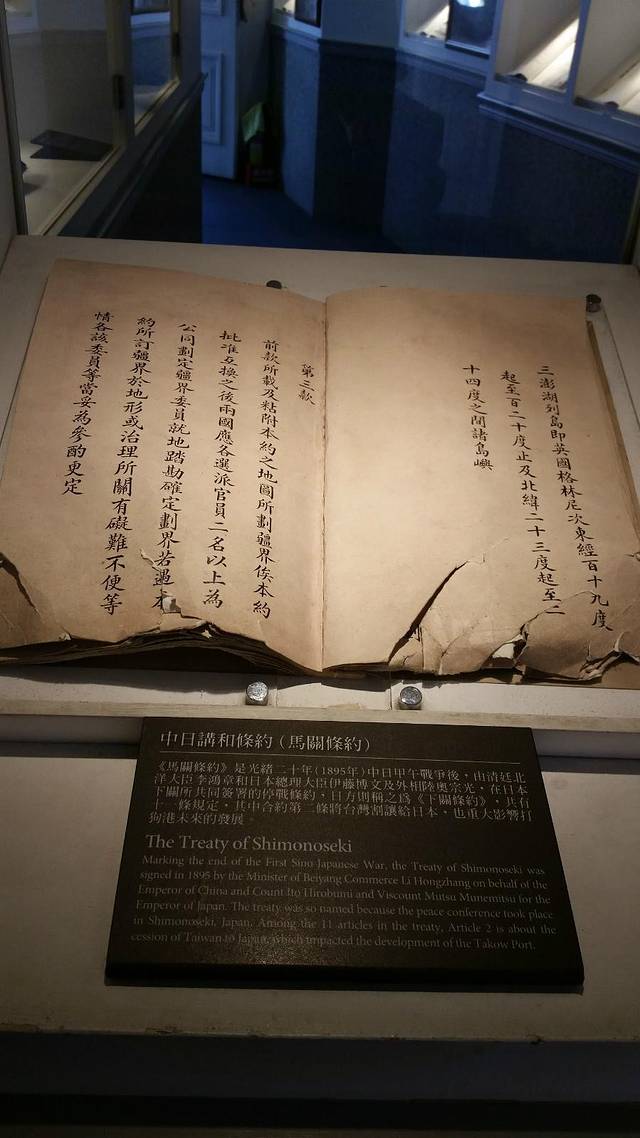 三澎湖列島即英國格林尼次東經百十九度
起至百二十度止及北緯二十三度起至二
十四度之間諸島嶼
第三款
前款所載及粘附本約之地圖所劃疆界俟本約
批准互換之後兩國應各選派官員二名以上為
公同劃定疆界委員就地踏勘確定劃界若遇本
約所訂疆界於地形或治理所關有礙難不便等
情各該委員等當妥為參酌更定
中日講和條約(馬關條約)
《馬關條約》是光緒二十年(1895年)中日甲午戰爭後,由清廷北
洋大臣李鴻章和日本總理大臣伊藤博文及外相陸奧宗光,在日本
下關所共同簽署的停戰條約,日方則稱之為《下關條約》,共有
十一條規定,其中合約第二條將台灣割讓給日本,也重大影響打
狗港未來的發展。
The Treaty of Shimonoseki
Marking the end of the First Sino-Japanese War, the Treaty of Shimonoseki was
signed in 1895 by the Minister of Beiyang Commerce Li Hongzhang on behalf of the
Emperor of China and Count Ito Hirobumi and Viscount Mutsu Munemitsu for the
Emperor of Japan. The treaty was so named because the peace conference took place
in Shimonoseki, Japan. Among the 11 articles in the treaty, Article 2 is about the
cession of Taiwan to Japan, which impacted the development of the Takow Port.